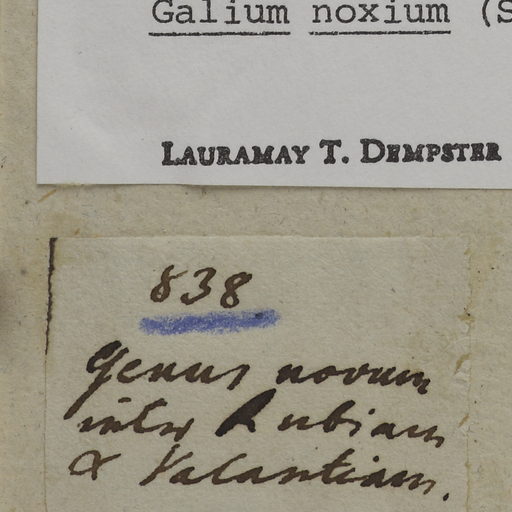 Galium noxium (S
LAURAMAY T. DEMPSTER
838
Genus novum
inter Rubiam
& Valantiam.